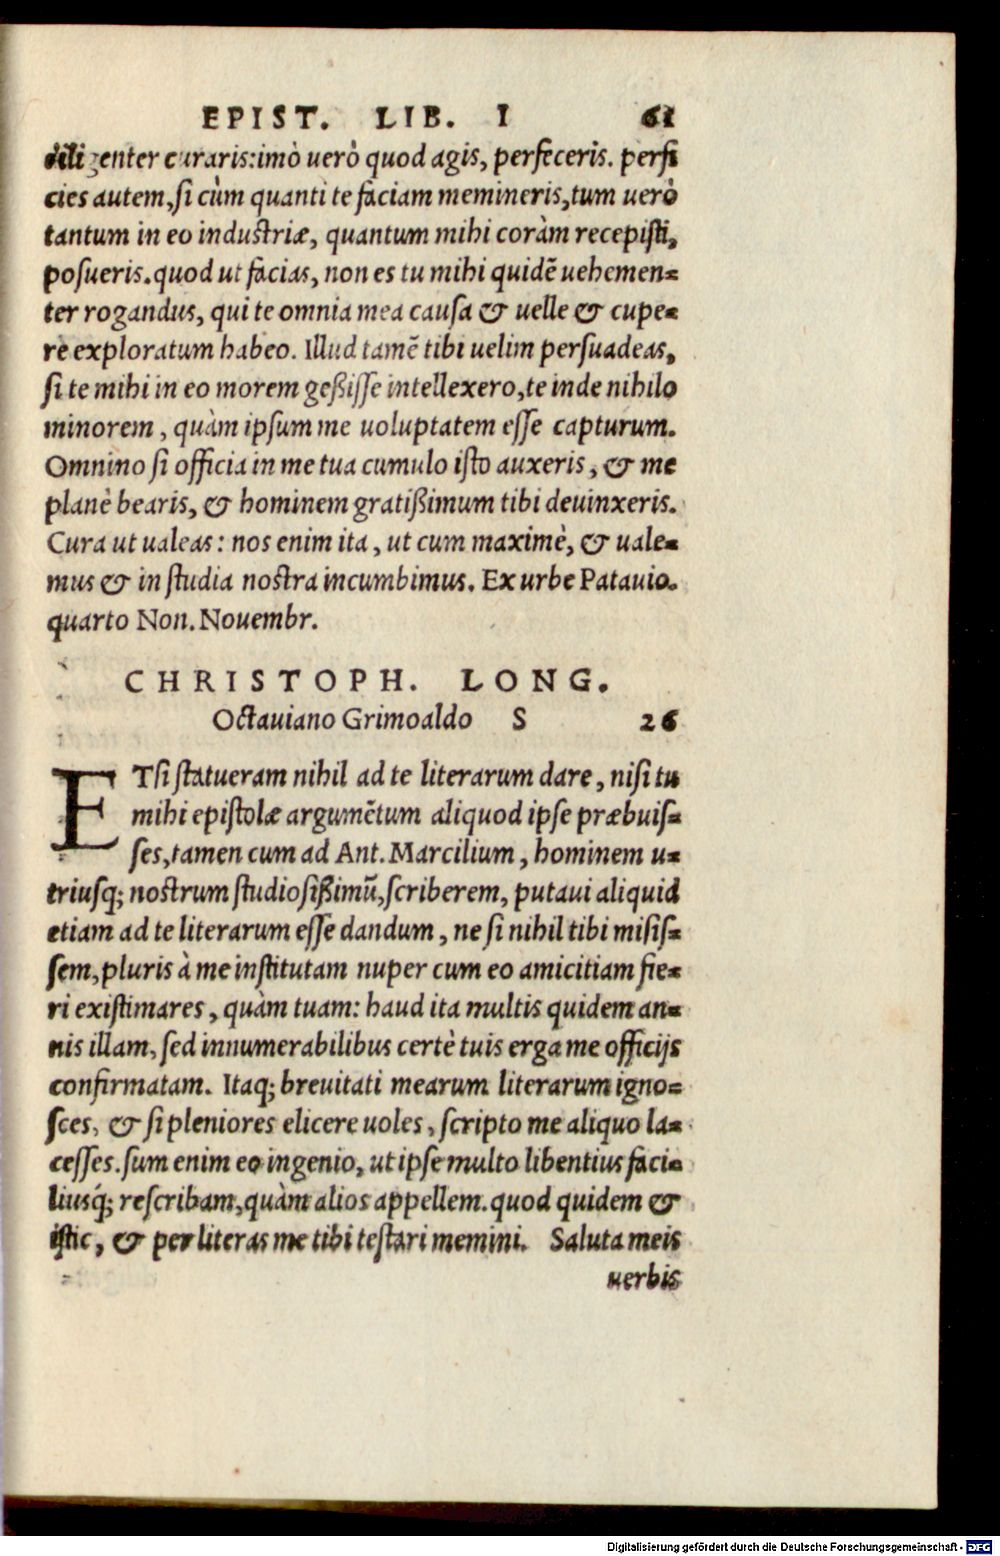 EPIST. LIB. I 61
diligenter curaris: imò uerò quod agis, perfeceris. perfi
cies autem, si cùm quanti te faciam memineris, tum uerò
tantum in eo industriæ, quantum mihi coràm recepisti,
posueris. quod ut facias, non es tu mihi quidẽ uehemen=
ter rogandus, qui te omnia mea causa & uelle & cupe=
re exploratum habeo. Illud tamẽ tibi uelim persuadeas,
si te mihi in eo morem geßisse intellexero, te inde nihilo
minorem, quàm ipsum me uoluptatem esse capturum.
Omnino si officia in me tua cumulo isto auxeris, & me
planè bearis, & hominem gratißimum tibi deuinxeris.
Cura ut ualeas: nos enim ita, ut cum maximè, & uale=
mus & in studia nostra incumbimus. Ex urbe Patauio.
quarto Non. Nouembr.
CHRISTOPH. LONG.
Octauiano Grimoaldo S 26
ETsi statueram nihil ad te literarum dare, nisi tu
mihi epistolæ argumẽtum aliquod ipse præbuis=
ses, tamen cum ad Ant. Marcilium, hominem u=
triusq; nostrum studiosißimũ, scriberem, putaui aliquid
etiam ad te literarum esse dandum, ne si nihil tibi misis=
sem, pluris à me institutam nuper cum eo amicitiam fie=
ri existimares, quàm tuam: haud ita multis quidem an=
nis illam, sed innumerabilibus certè tuis erga me officijs
confirmatam. Itaq; breuitati mearum literarum igno=
sces, & si pleniores elicere uoles, scripto me aliquo la=
cesses. sum enim eo ingenio, ut ipse multo libentius faci=
liusq́; rescribam, quàm alios appellem. quod quidem &
istic, & per literas me tibi testari memini. Saluta meis
uerbis
Digitalisierung gefördert durch die Deutsche Forschungsgemeinschaft - DFG